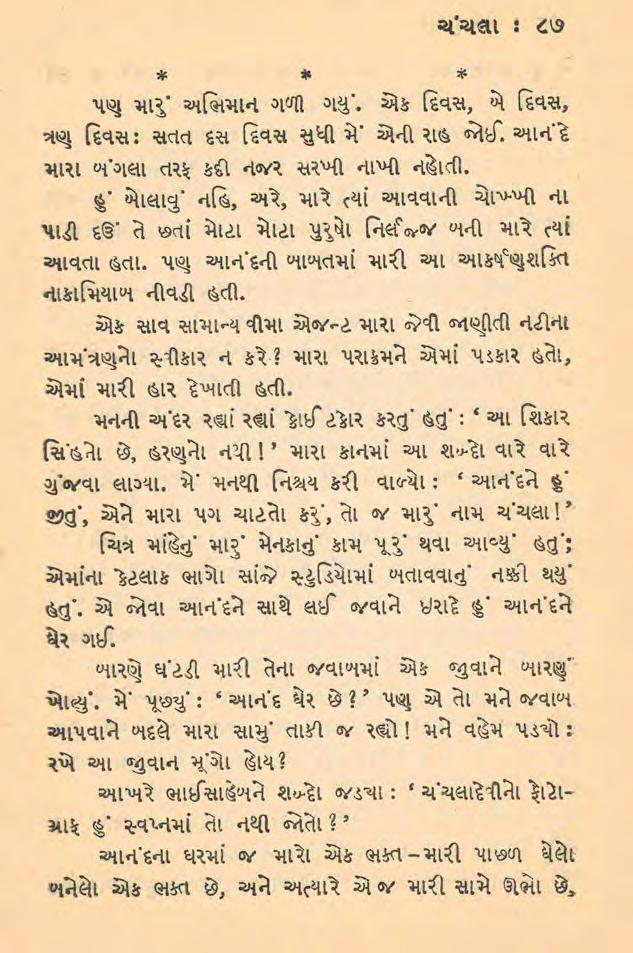 ચંચલા : ૮૭
* * *
પણ મારું અભિમાન ગળી ગયું. એક દિવસ, બે દિવસ,
ત્રણ દિવસ: સતત દસ દિવસ સુધી મેં એની રાહ જોઈ. આનંદે
મારા બંગલા તરફ કદી નજર સરખી નાખી નહોતી.
હું બોલાવું નહિ, અરે, મારે ત્યાં આવવાની ચોખ્ખી ના
પાડી દઉં તે છતાં મોટા મોટા પુરુષો નિર્લજ્જ બની મારે ત્યાં
આવતા હતા. પણ આનંદની બાબતમાં મારી આ આકર્ષણશક્તિ
નાકામિયાબ નીવડી હતી.
એક સાવ સામાન્ય વીમા એજન્ટ મારા જેવી જાણીતી નટીના
આમંત્રણનો સ્વીકાર ન કરે? મારા પરાક્રમને એમાં પડકાર હતો,
એમાં મારી હાર દેખાતી હતી.
મનની અંદર રહ્યાં રહ્યાં કોઈ ટકોર કરતું હતું : ‘આ શિકાર
સિંહનો છે, હરણનો નથી!’ મારા કાનમાં આ શબ્દો વારે વારે
ગુંજવા લાગ્યા. મેં મનથી નિશ્ચય કરી વાળ્યો : ‘આનંદને હું
જીતું, એને મારા પગ ચાટતો કરું, તો જ મારું નામ ચંચલા!’
ચિત્ર માંહેનું મારું મેનકાનું કામ પૂરું થવા આવ્યું હતું;
એમાંના કેટલાક ભાગો સાંજે સ્ટુડિયોમાં બતાવવાનું નક્કી થયું
હતું. એ જોવા આનંદને સાથે લઈ જવાને ઇરાદે હું આનંદને
ઘેર ગઈ.
બારણે ઘંટડી મારી તેના જવાબમાં એક જુવાને બારણું
ખોલ્યું. મેં પૂછ્યું : ‘આનંદ ઘેર છે?’ પણ એ તો મને જવાબ
આપવાને બદલે મારા સામું તાકી જ રહ્યો! મને વહેમ પડ્યો :
રખે આ જુવાન મૂંગો હોય?
આખરે ભાઈસાહેબને શબ્દો જડ્યા : ‘ચંચલાદેવીનો ફોટો-
ગ્રાફ હું સ્વપ્નમાં તો નથી જોતો?’
આનંદના ઘરમાં જ મારો એક ભક્ત–મારી પાછળ ઘેલો
બનેલો એક ભક્ત છે, અને અત્યારે એ જ મારી સામે ઊભો છે,